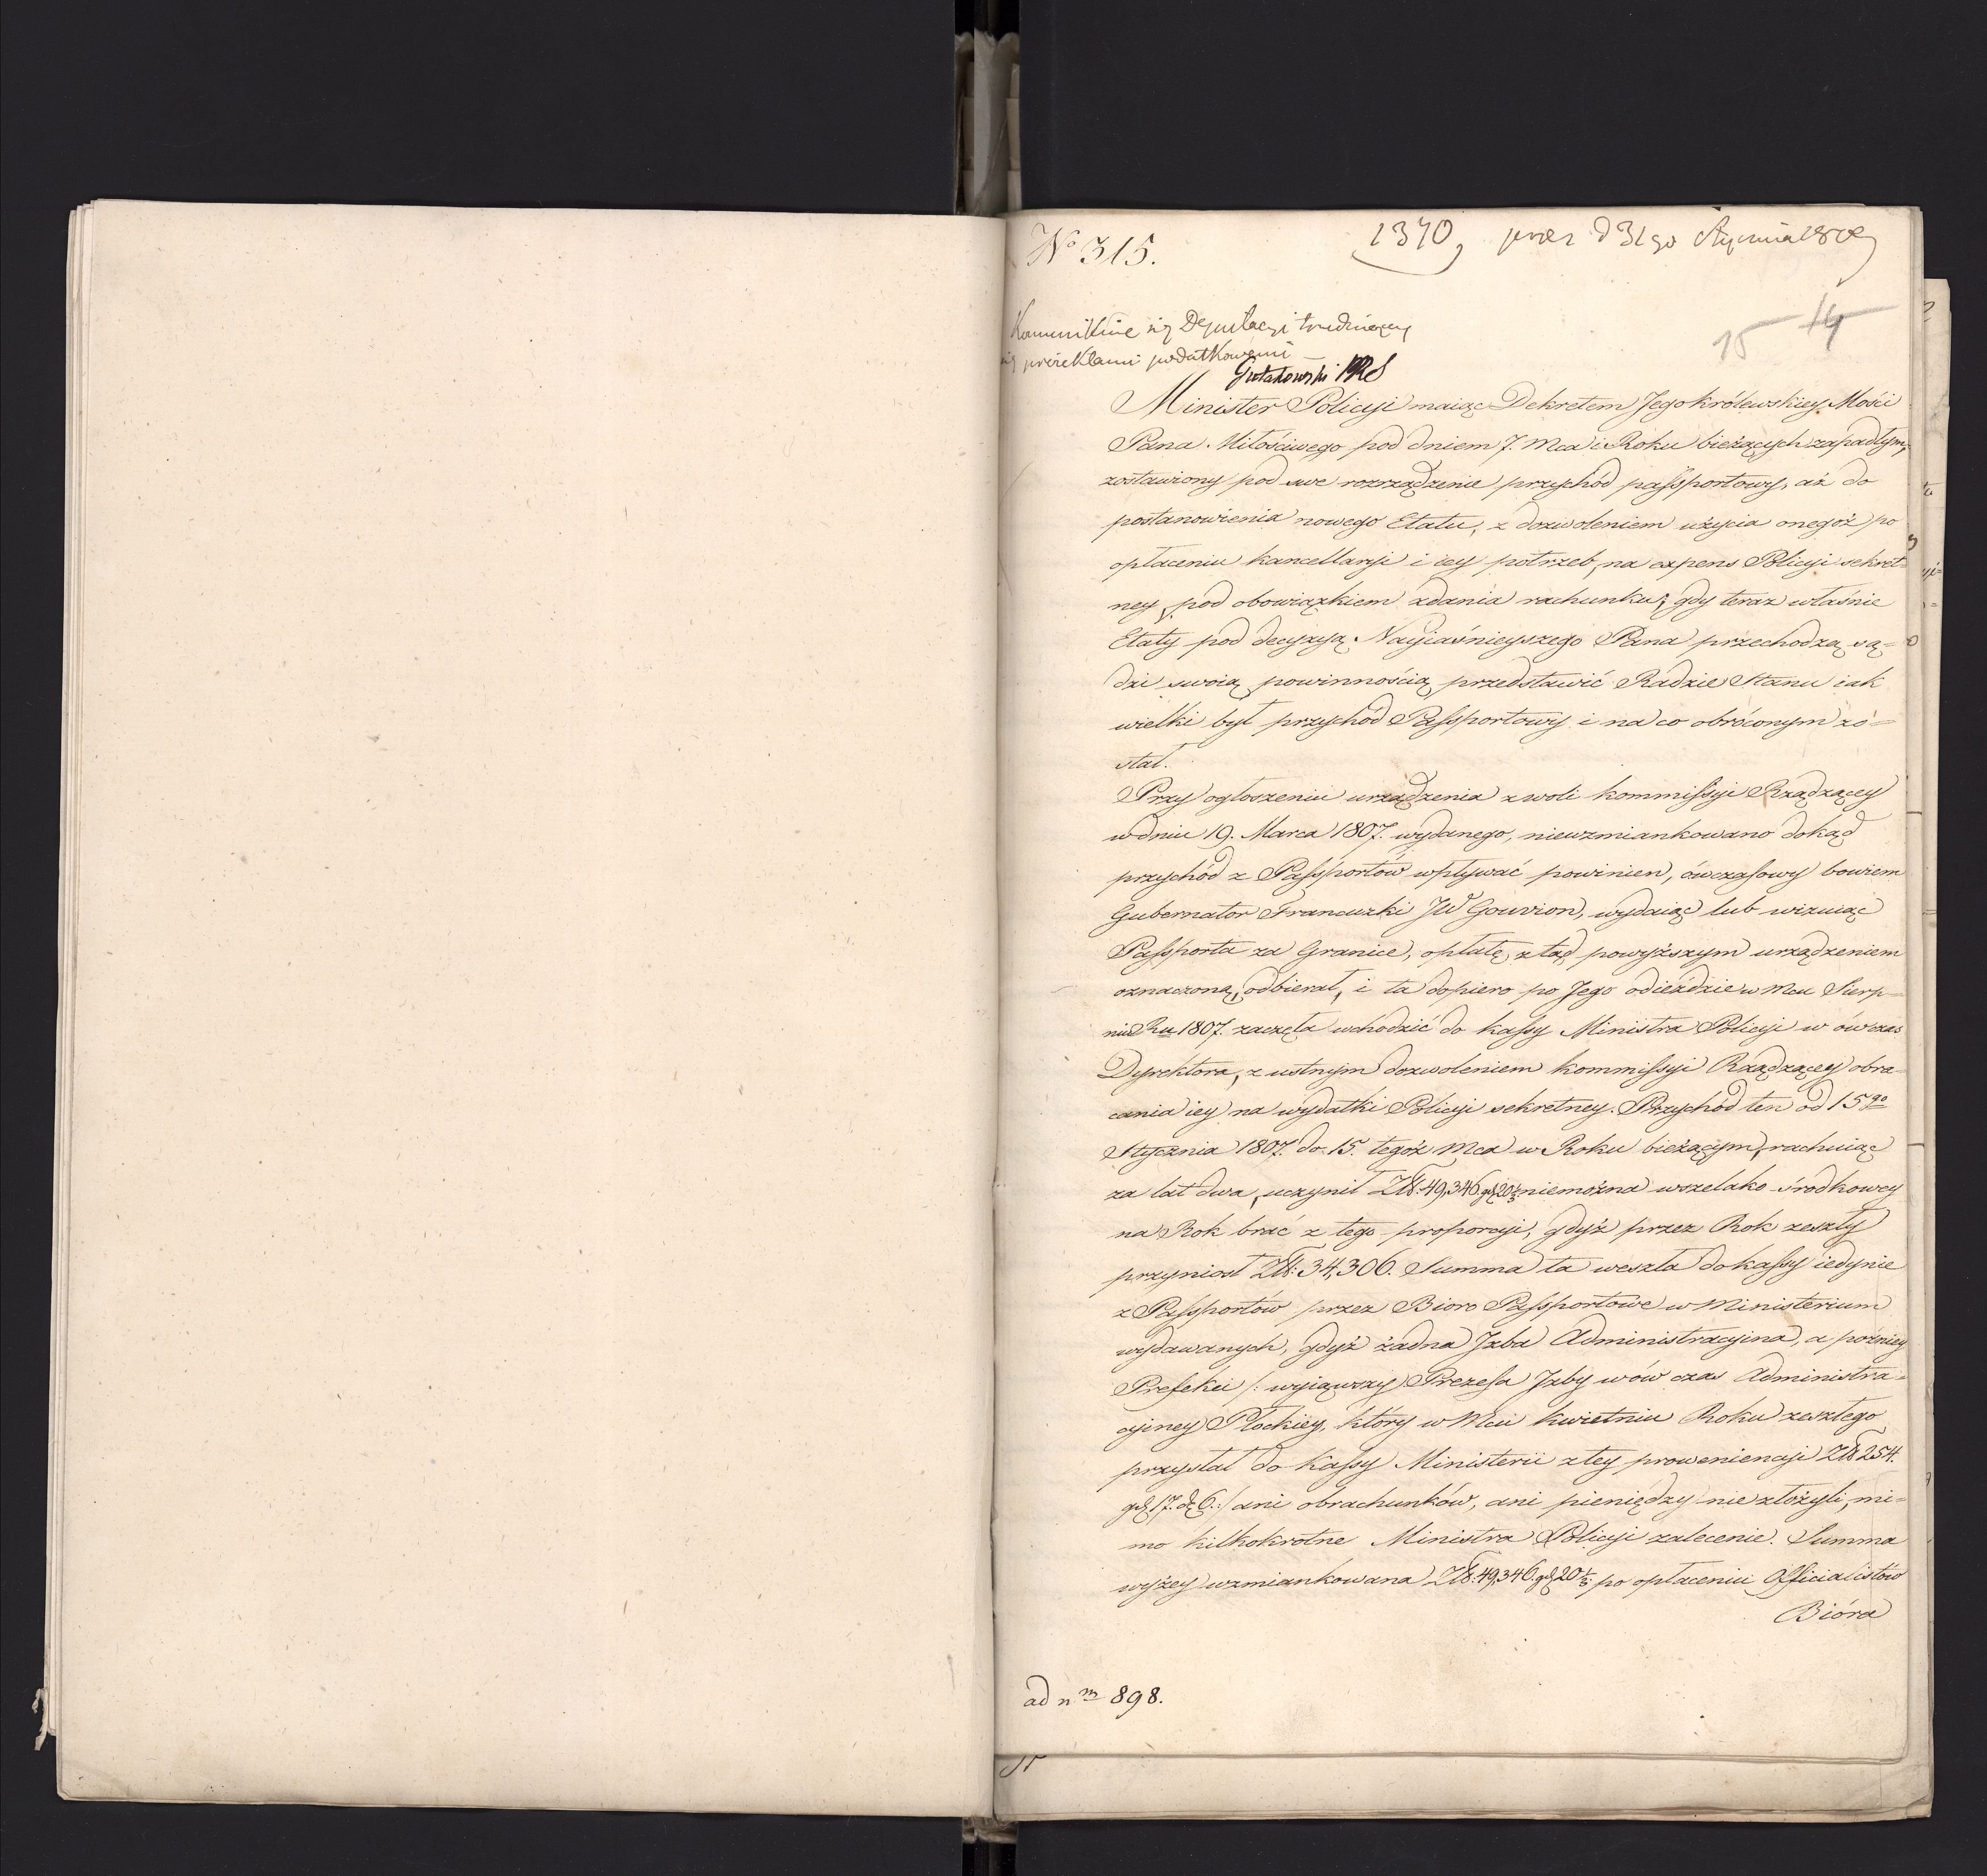 No 315.
1370, prez d 31go Stycznia 1809
15 14
Kommunikuie się Deputacyi trudniącey
się proiektami podatkowemi
Gutakowski PRS
Minister Policyi maiąc Dekretem Jego królewskiey Mości
Pana Miłościwego pod dniem 7. Mca i Roku bieżących zapadłym,
zostawiony pod swe rozrządzenie przychód passportowy, aż do
postanowienia nowego Etatu, z dozwoleniem użycia onegóż po
opłaceniu kancellaryi i iey potrzeb, na expens Policyi sekret-
ney, pod obowiązkiem zdania rachunku; gdy teraz właśnie
Etaty pod decyzyą Nayiaśnieyszego Pana przechodzą są=
dzi swoią powinnością przedstawić Radzie Stanu iak
wielki był przychód Passportowy i na co obróconym zo=
stał.
Przy ogłoszeniu urządzenia z woli kommissyi Rządzącey
w dniu 19. Marca 1807. wydanego, niewzmiankowano dokąd
przychód z Passportów wpływać powinien, ówczasowy bowiem
Gubernator Francuzki JW Gouvion, wydaiąc lub wizuiąc
Passporta za Granice, opłatę, ztąd powyższym urządzeniem
oznaczoną, odbierał, i ta dopiero po Jego odieździe w Mcu Sierp-
niu Ru 1807. zaczęła wchodzić do kassy Ministra Policyi w ówczas
Dyrektora, z ustnym dozwoleniem kommissyi Rządzącey obra-
cania iey na wydatki Policyi sekretney. Przychód ten od 15go
Stycznia 1807. do 15. tegóż Mca w Roku bieżącym, rachuiąc
za lat dwa, uczynił Złł: 49,346 gr 20⅓ niemożna wszelako środkowey
na Rok brać z tego proporcyi, gdyż przez Rok zeszły
przyniosł Złł: 34,306. Summa ta weszła do kassy iedynie
z Passportów przez Bioro Passportowe w Ministerium
wydawanych, gdyż żadna Jzba Administracyina, a poźniey
Prefekci /: wyiąwszy Prezesa Jzby wów czas Administra-
cyiney Płockiey, który w Mcu kwietniu Roku zeszłego
przysłał do Kassy Ministerii ztey proweniencyi Złł 254.
gr 17. d 6. :/ ani obrachunków, ani pieniędzy nie złożyli, mi=
mo kilkokrotne Ministra Policyi zalecenie. Summa
wyżey wzmiankowana Złł: 49,346. gr 20⅓ po opłaceniu Officialistów
Bióra
ad nm 898.